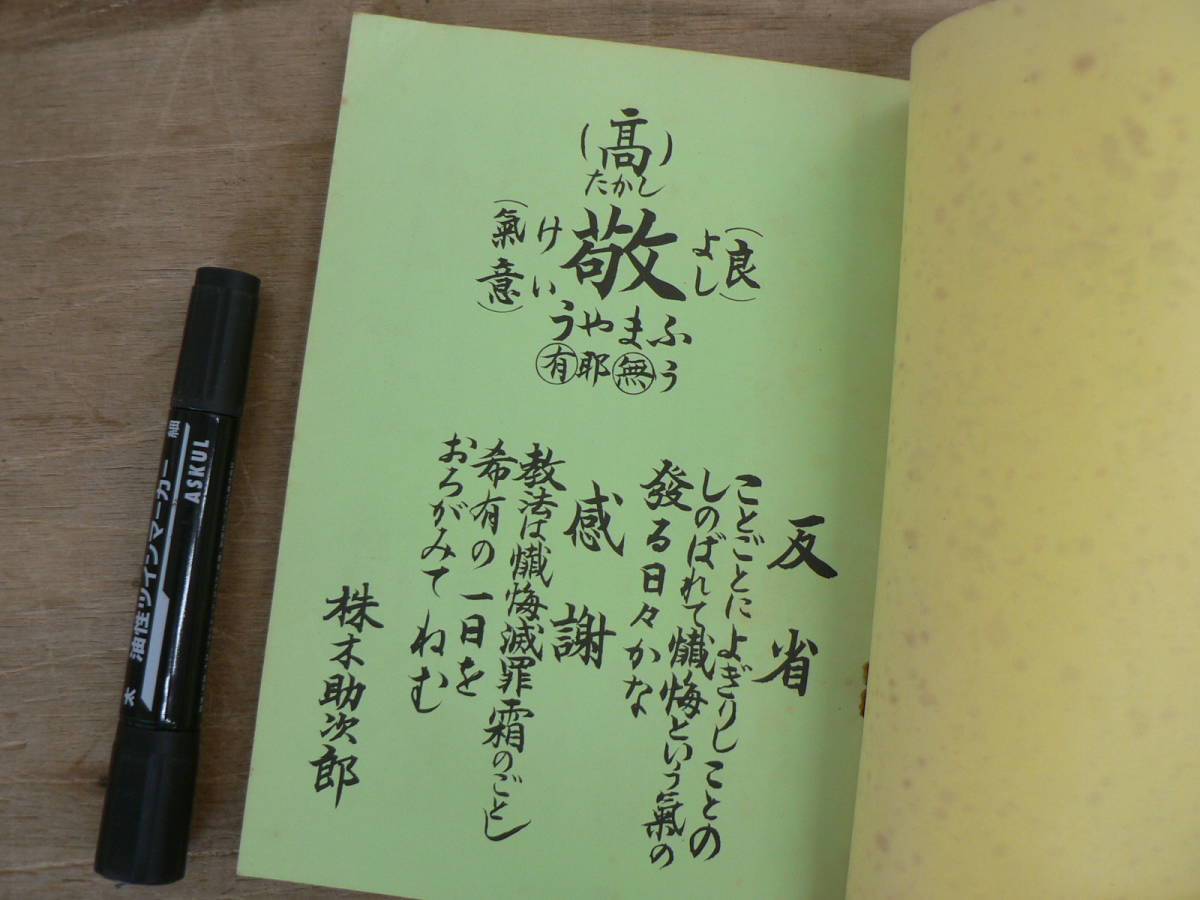 （高）
たかし
敬
（良）
よし
けい
（氣意）
うやまふ
有耶無う
反省
ことごとによぎりしことの
しのばれて懺悔という氣の
發る日々かな
感謝
教法は懺悔滅罪霜のごとし
希有の一日を
おろがみてねむ
株木助次郎
細
ASKUL
油性ツインマーカー
太